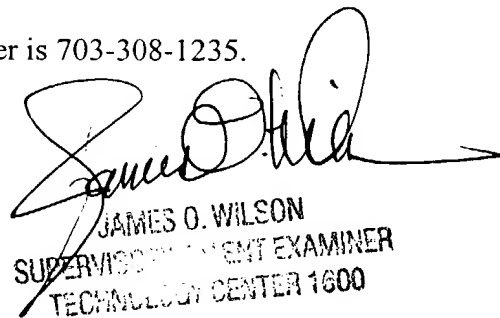 er is 703-308-1235.
James O. Wilson
JAMES O. WILSON
SUPERVISORY PATENT EXAMINER
TECHNOLOGY CENTER 1600